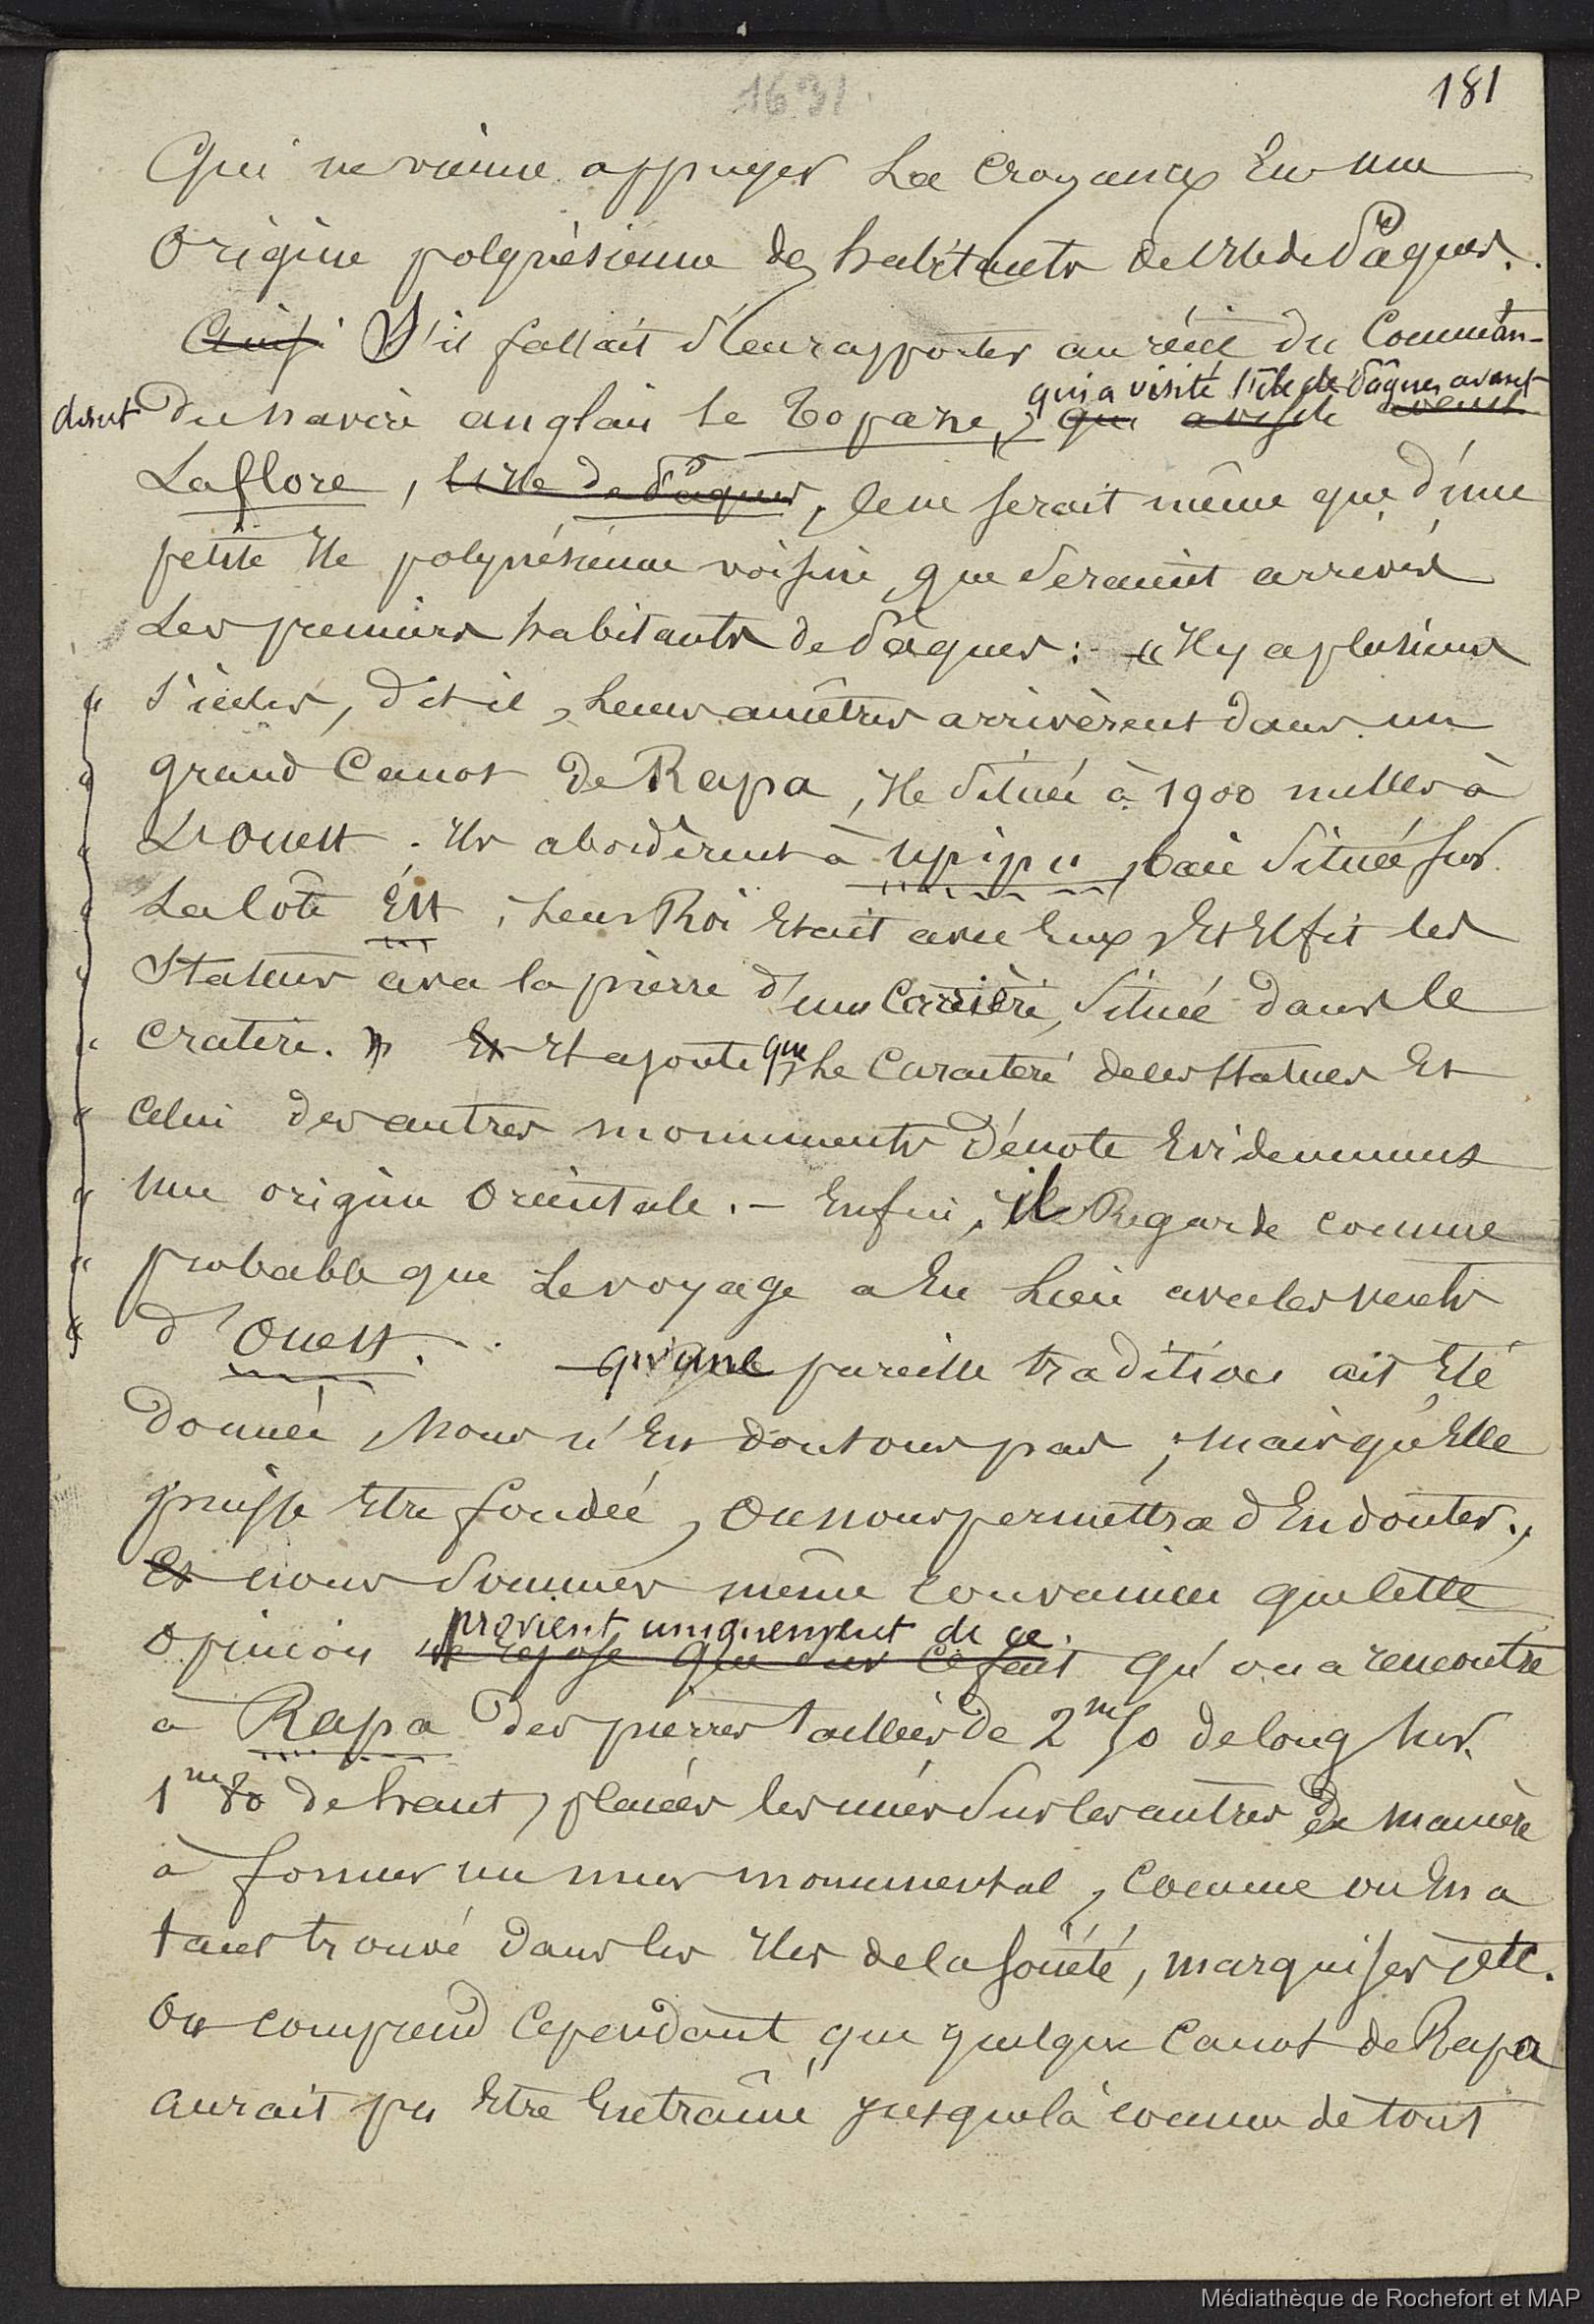 1631.
181
Qui ne vienne appuyer la croyance en une
origine polynésienne des habitants de l'île de Pâques.
Ainsi S'il fallait s'en rapporter au récit du Comman-
dant du navire anglais le Topaze, qui a visité l'île de Pâques avant
La flore, l'île de Pâques, ce ne serait même que d'une
petite île polynésienne voisine, que seraient arrivés
Les premiers habitants de Pâques : « Il y a plusieurs
" siècles, dit-il, leurs ancêtres arrivèrent dans un
" grand Canot de Rapa, île située à 1900 milles à
" L'Ouest. Ils abordèrent à Upipu, baie située sur
" La Côte Est, leur Roi était avec eux, et il fit les
" Statues avec la pierre d'une Carrière, située dans le
" cratère. » Et Il ajoute que le Caractère de ces statues et
" celui des autres monuments dénote évidemment
" une origine orientale. — Enfin, il Regarde comme
" probable que le voyage a eu lieu avec les vents
" d'Ouest. — qu'une pareille tradition ait été
donnée, nous n'en doutons pas ; mais qu'elle
puisse être fondée, on nous permettra d'en douter.,
Et nous sommes même convaincu que cette
opinion provient uniquement de ce
ne repose que sur ce fait qu'on a rencontré
à Rapa des pierres taillées de 2m 50 de long sur
1m 80 de haut, placées les unes sur les autres de manière
à former un mur monumental, comme on en a
tant trouvé dans les îles de la Société, marquises, etc.
On comprend cependant que quelque Canot de Rapa
aurait pu être entraîné jusque là comme de tout
Médiathèque de Rochefort et MAP